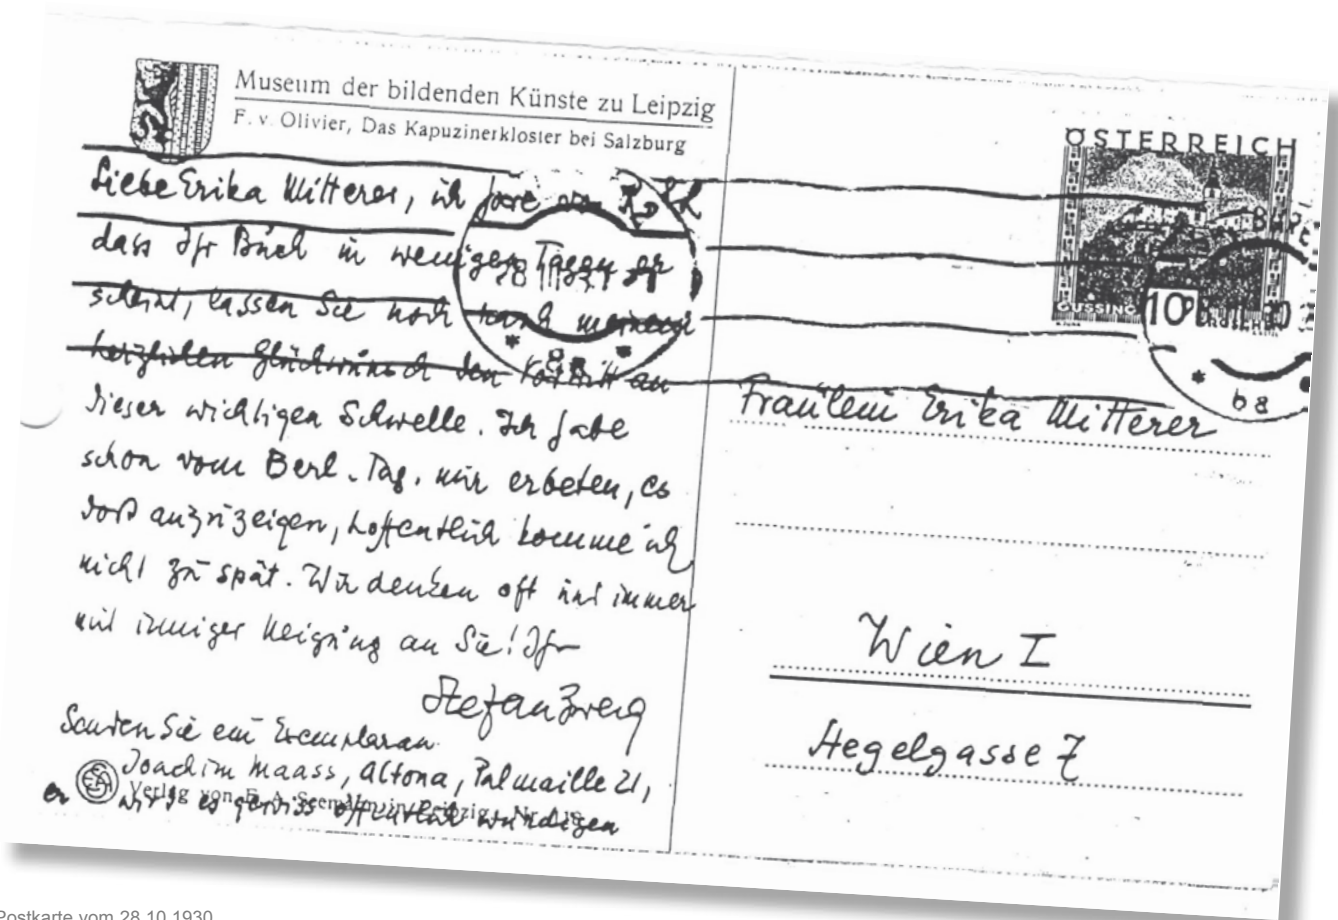 Museum der bildenden Künste zu Leipzig
F. v. Olivier, Das Kapuzinerkloster bei Salzburg
Liebe Erika Mitterer, ich höre von R & L
dass Ihr Buch in wenigen Tagen er
scheint, lassen Sie noch meinen
herzlichen Glückwunsch den Vortritt an
dieser wichtigen Schwelle. Ich habe
schon vom Berl. Tag. mir erbeten, es
dort anzuzeigen, hoffentlich komme ich
nicht zu spät. Wir denken oft und immer
mit inniger Neigung an Sie! Ihr
Stefan Zweig
Senden Sie ein Exemplar an
Joachim Maass, Altona, Palmaille 21,
er wird es gewiss öffentlich würdigen
Verlag von E. A. Seemann in Leipzig
ÖSTERREICH
GÜSSING
10
8a
8a
Fräulein Erika Mitterer
Wien I
Hegelgasse 7
Postkarte vom 28.10.1930